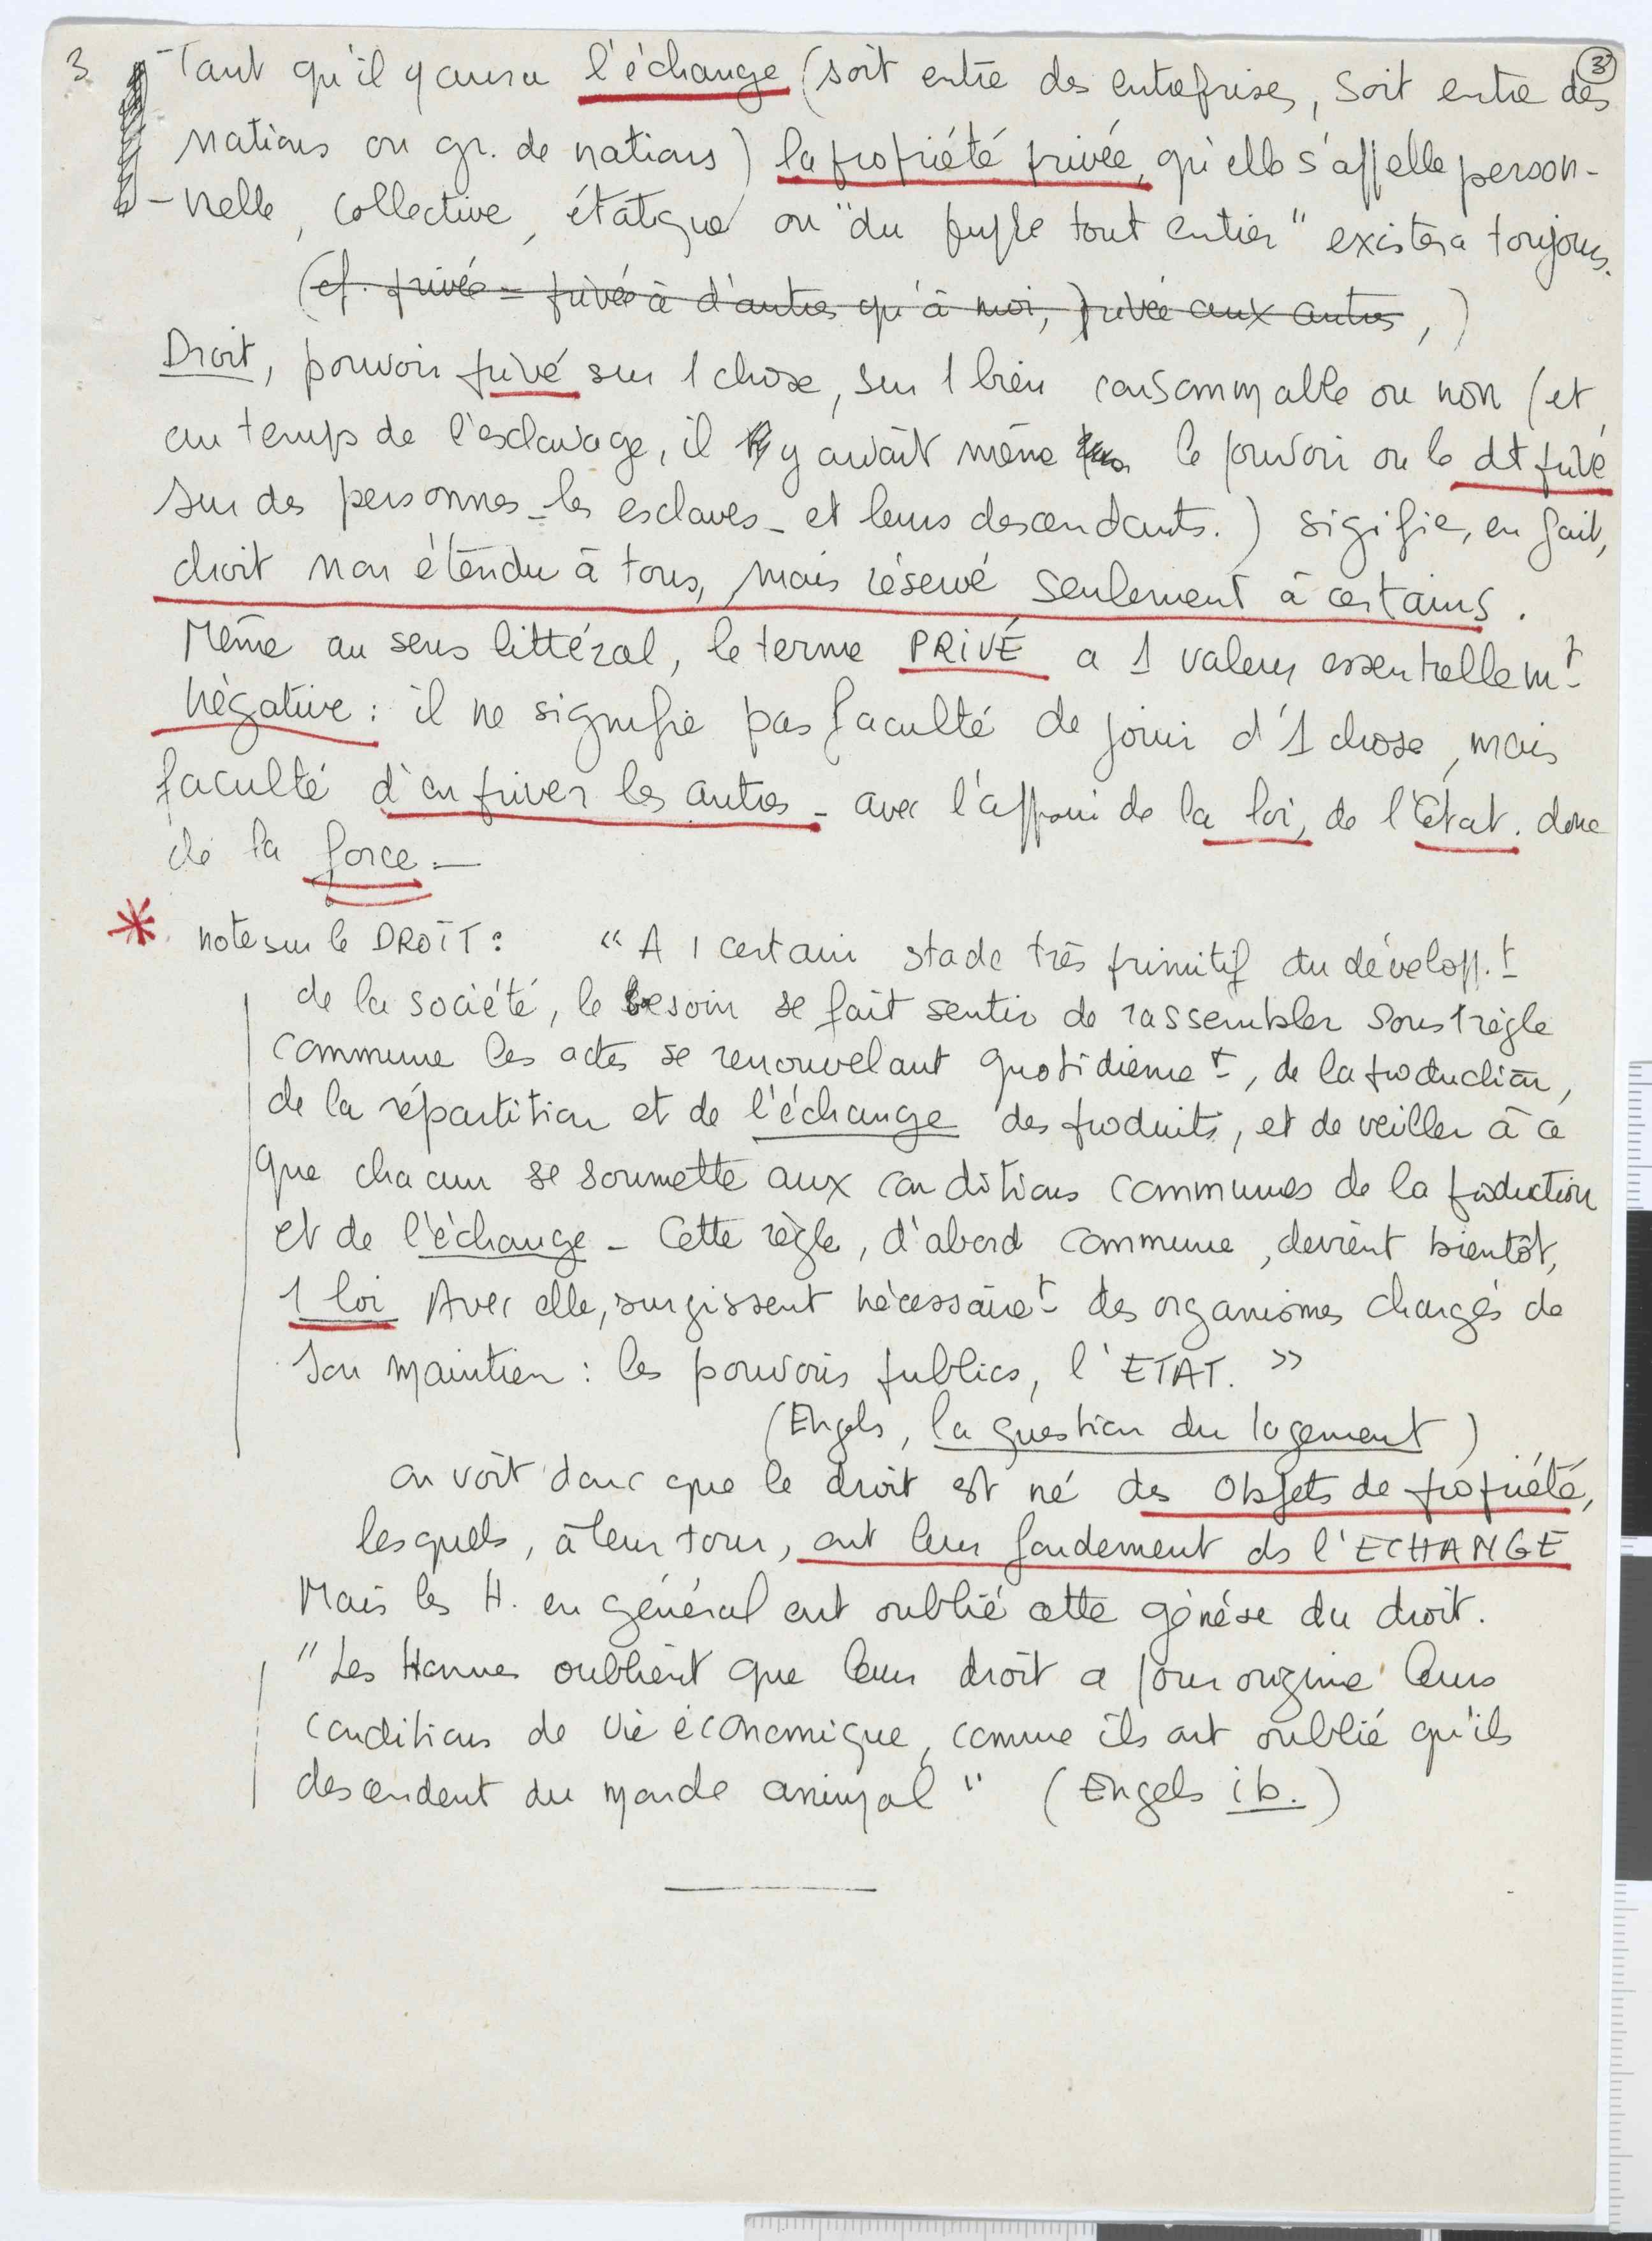 3 - Tant qu'il y aura l'échange (soit entre des entreprises, soit entre des 3
nations ou gr. de nations) la propriété privée, qu'elle s'appelle person-
-nelle, collective, étatique ou "du peuple tout entier" existera toujours.
(cf. privée = privée à d'autres qu'à moi, privée aux autres,)
Droit, pouvoir privé sur 1 chose, sur 1 bien consommable ou non (et
au temps de l'esclavage, il y avait même le pouvoir ou le dt privé
sur des personnes - les esclaves - et leurs descendants.) sigifie, en fait,
droit non étendu à tous, mais réservé seulement à certains.
Même au sens littéral, le terme PRIVÉ a 1 valeur essentiellemt
négative : il ne signifie pas faculté de jouir d'1 chose, mais
faculté d'en priver les autres - avec l'appui de la loi, de l'état. donc
de la force -
* note sur le DROIT : "A 1 certain stade très primitif du dévelopt
de la société, le besoin se fait sentir de rassembler sous 1 règle
commune les actes se renouvelant quotidiennet, de la production,
de la répartition et de l'échange des produits, et de veiller à ce
que chacun se soumette aux conditions communes de la production
et de l'échange - Cette règle, d'abord commune, devient bientôt,
1 loi Avec elle, surgissent nécessairet des organismes chargés de
son maintien : les pouvoirs publics, l'ETAT. "
(Engels, la question du logement)
on voit donc que le droit est né des objets de propriété,
lesquels, à leur tour, ont leur fondement ds l'ECHANGE
Mais les H. en général ont oublié cette génèse du droit.
"Les Hommes oublient que leur droit a pour origine leurs
conditions de vie économique, comme ils ont oublié qu'ils
descendent du monde animal" (Engels ib.)